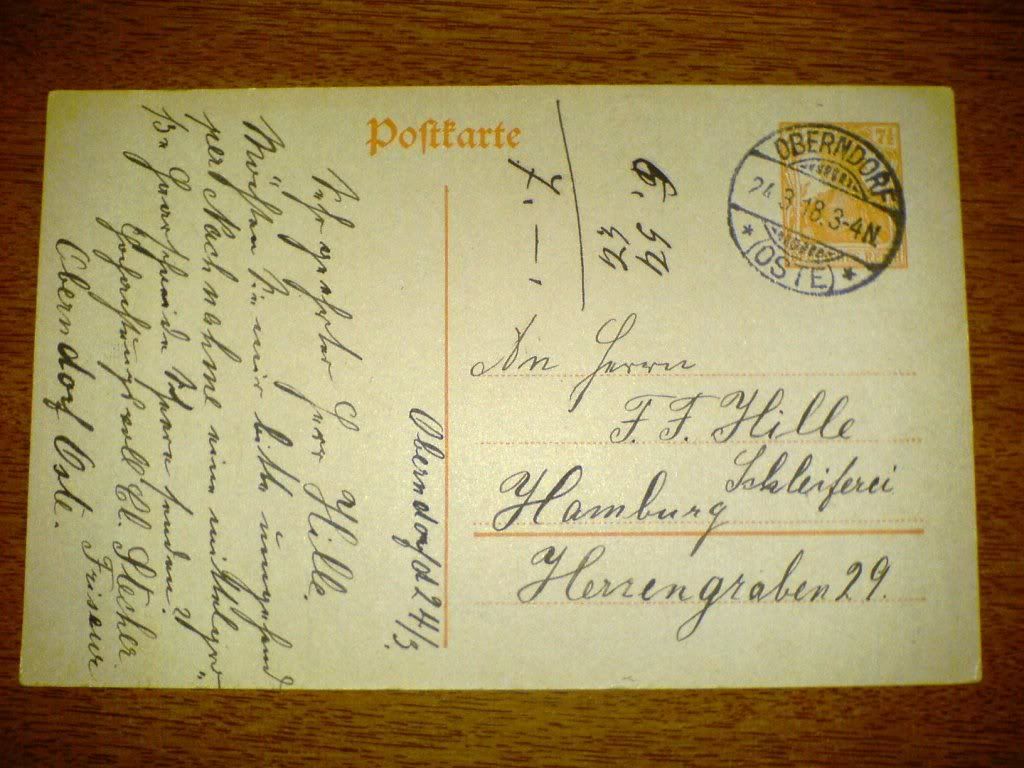 Postkarte
7½
OBERNDORF
24.3.18.3-4N.
* (OSTE) *
6. 54
7. — ,
An Herrn
F. F. Hille
Schleiferei
Hamburg
Herrengraben 29.
Oberndorf d 24/3.
Sehr geehrter Herr Hille.
Möchten Sie mir bitte umgehend
per Nachnahme eine
Haarschneide Schere senden.
Hochachtungsvoll Cl. Stecher
Friseur
Oberndorf Oste.